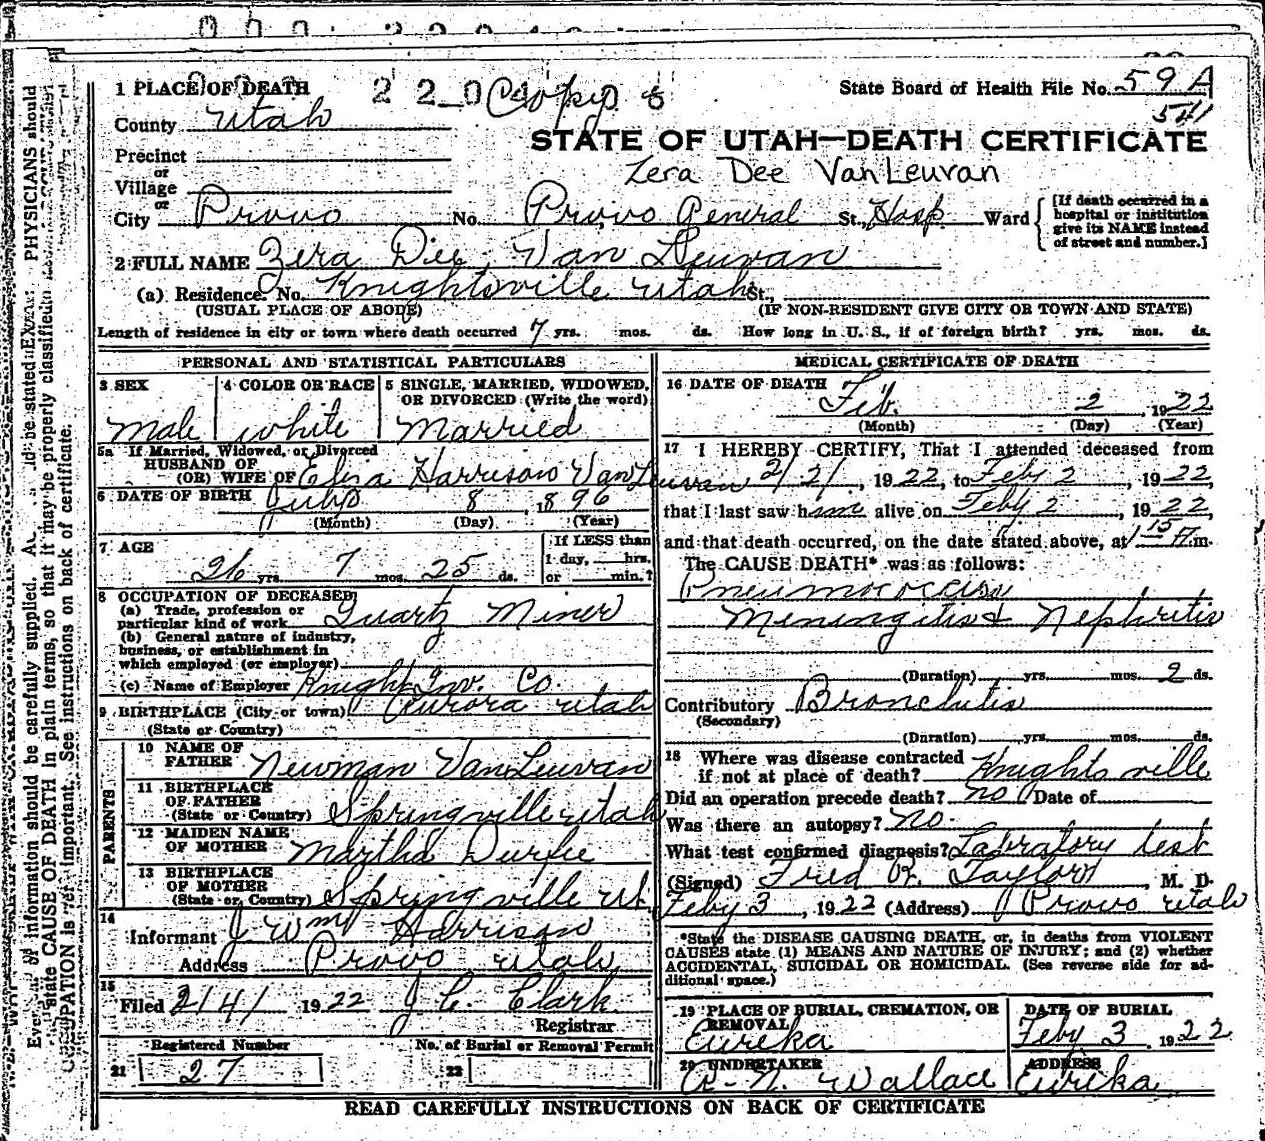 1 PLACE OF DEATH 2 2 0 Copy 8 State Board of Health File No. 59A
County Utah 541
STATE OF UTAH—DEATH CERTIFICATE
Precinct
or Zera Dee VanLeuvan
Village
or
City Provo No. Provo General St., Hosp. Ward [If death occurred in a hospital or institution give its NAME instead of street and number.]
2 FULL NAME Zera Dee Van Leuvan
(a) Residence. No. Knightsville Utah St.,
(USUAL PLACE OF ABODE) (IF NON-RESIDENT GIVE CITY OR TOWN AND STATE)
Length of residence in city or town where death occurred 7 yrs. mos. ds. How long in U. S., if of foreign birth? yrs. mos. ds.
PERSONAL AND STATISTICAL PARTICULARS
3 SEX 4 COLOR OR RACE 5 SINGLE, MARRIED, WIDOWED,
OR DIVORCED (Write the word)
Male white Married
5a If Married, Widowed, or Divorced
HUSBAND OF
(OR) WIFE OF Eliza Harrison Van Leuvan
6 DATE OF BIRTH July 8, 1896
(Month) (Day) (Year)
7 AGE If LESS than
1 day, hrs.
26 yrs. 7 mos. 25 ds. or min.?
8 OCCUPATION OF DECEASED
(a) Trade, profession or
particular kind of work Quartz Miner
(b) General nature of industry,
business, or establishment in
which employed (or employer)
(c) Name of Employer Knight Inv. Co.
9 BIRTHPLACE (City or town) Aurora Utah
(State or Country)
PARENTS
10 NAME OF
FATHER Newman VanLeuvan
11 BIRTHPLACE
OF FATHER
(State or Country) Springville Utah
12 MAIDEN NAME
OF MOTHER Martha Durfee
13 BIRTHPLACE
OF MOTHER
(State or Country) Springville Ut
14
Informant J Wm Harrison
Address Provo Utah
15
Filed 2/4/ 1922 J. C. Clark
Registrar
Registered Number No. of Burial or Removal Permit
21 27 22
MEDICAL CERTIFICATE OF DEATH
16 DATE OF DEATH
Feb. 2, 1922
(Month) (Day) (Year)
17 I HEREBY CERTIFY, That I attended deceased from
2/2/, 1922, to Feby 2, 1922,
that I last saw him alive on Feby 2, 1922,
and that death occurred, on the date stated above, at 1 15 A.m.
The CAUSE DEATH* was as follows:
Pneumococcus
Meningitis & Nephritis
(Duration) yrs. mos. 2 ds.
Contributory Bronchitis
(Secondary)
(Duration) yrs. mos. ds.
18 Where was disease contracted
if not at place of death? Knightsville
Did an operation precede death? no Date of
Was there an autopsy? no.
What test confirmed diagnosis? Labratory test
(Signed) Fred R. Taylor, M. D.
Feby 3, 1922 (Address) Provo Utah
*State the DISEASE CAUSING DEATH, or, in deaths from VIOLENT
CAUSES state (1) MEANS AND NATURE OF INJURY; and (2) whether
ACCIDENTAL, SUICIDAL OR HOMICIDAL. (See reverse side for ad-
ditional space.)
19 PLACE OF BURIAL, CREMATION, OR DATE OF BURIAL
REMOVAL
Eureka Feby 3, 1922
20 UNDERTAKER ADDRESS
A. N. Wallace Eureka
READ CAREFULLY INSTRUCTIONS ON BACK OF CERTIFICATE
of information should be carefully supplied. PHYSICIANS should
state CAUSE OF DEATH in plain terms, so that it may be properly classified.
important. See instructions on back of certificate.